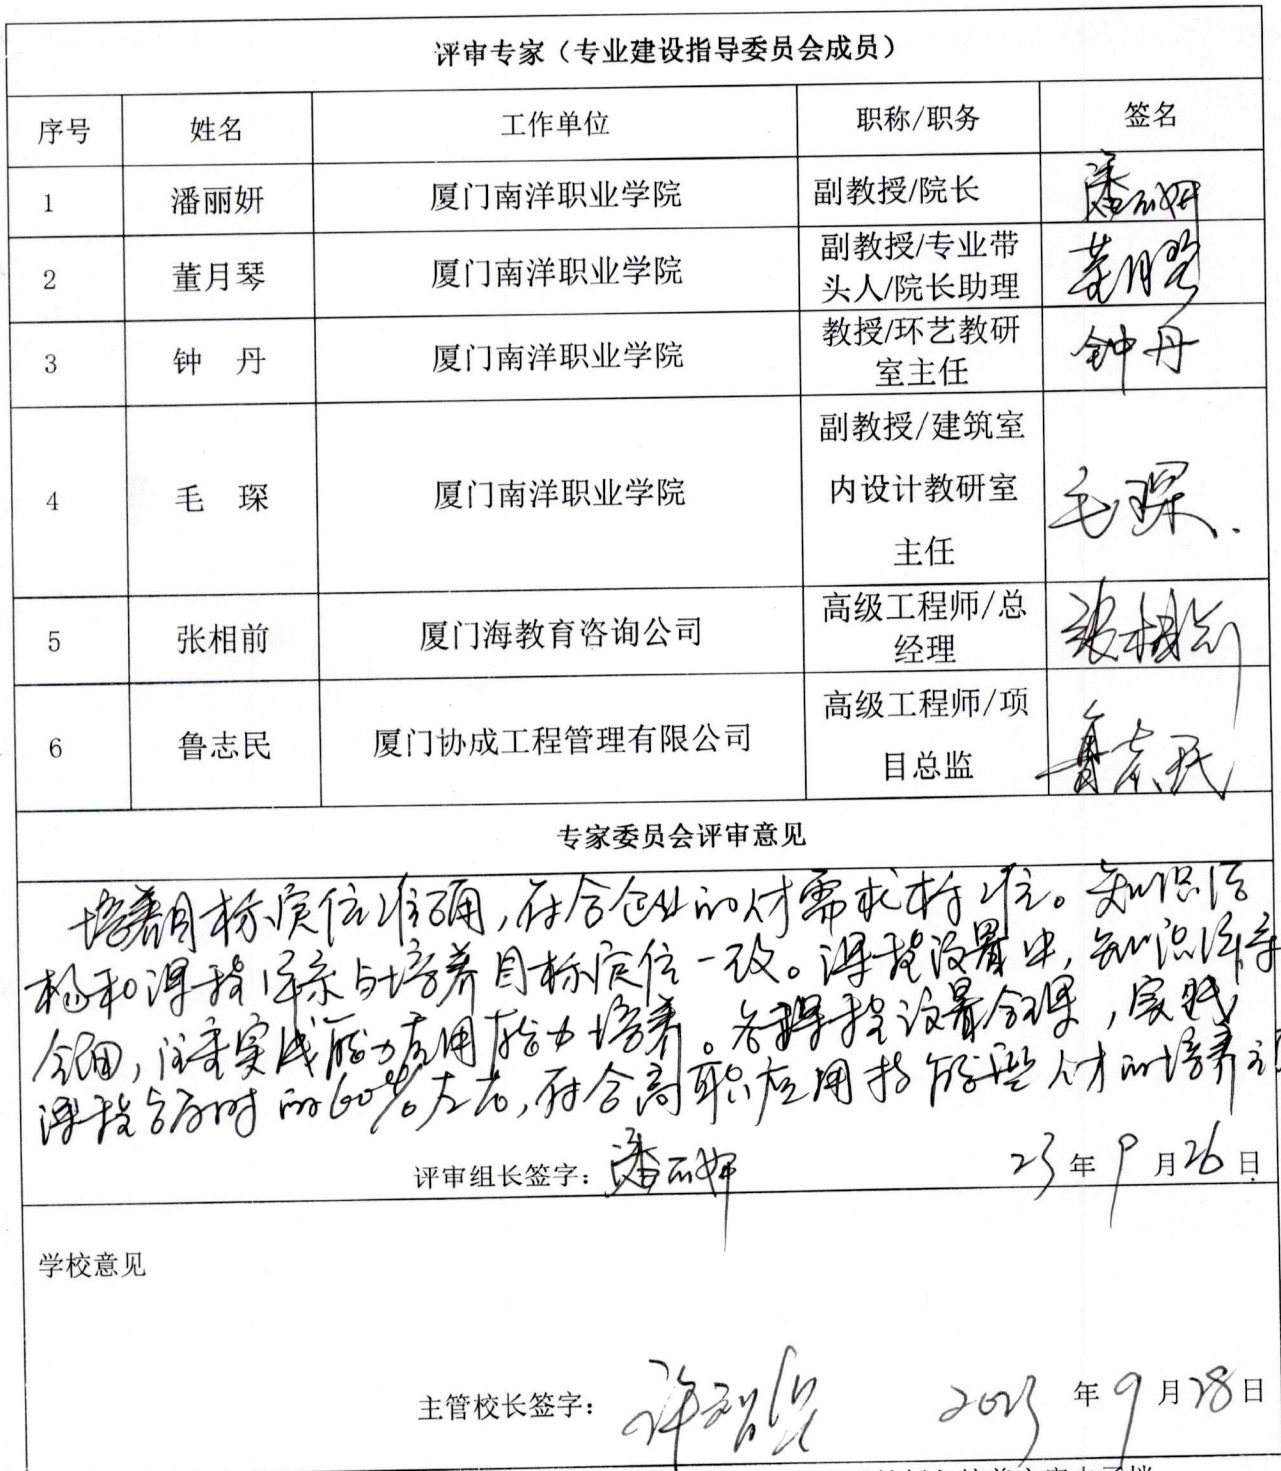 评审专家（专业建设指导委员会成员）
序号 姓名 工作单位 职称/职务 签名
1 潘丽妍 厦门南洋职业学院 副教授/院长 潘丽妍
2 董月琴 厦门南洋职业学院 副教授/专业带 董月琴
头人/院长助理
3 钟 丹 厦门南洋职业学院 教授/环艺教研 钟丹
室主任
4 毛 琛 厦门南洋职业学院 副教授/建筑室 毛琛
内设计教研室
主任
5 张相前 厦门海教育咨询公司 高级工程师/总 张相前
经理
6 鲁志民 厦门协成工程管理有限公司 高级工程师/项 鲁志民
目总监
专家委员会评审意见
培养目标定位准确，符合企业的人才需求标准。知识结
构和课程体系与培养目标定位一致。课程设置中，知识体系
全面，注重实践能力应用能力培养。各课程设置合理，实践
课程占学时的60%左右，符合高职应用技能型人才的培养
评审组长签字：潘丽妍 23年9月26日
学校意见
主管校长签字： 2023年9月28日